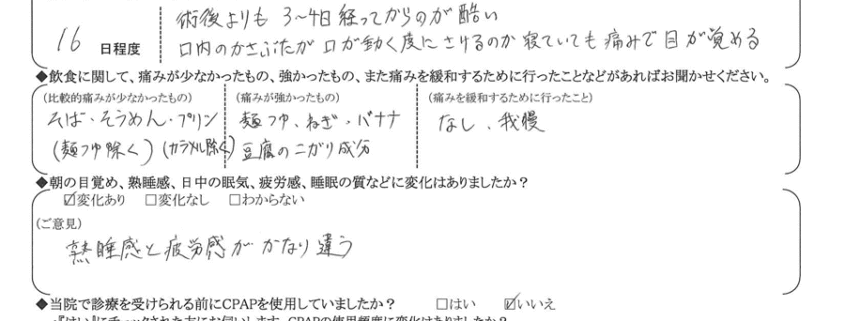 術後よりも 3~4日経ってからのが酷い
16 日程度
口内のかさぶたが口が動く度にさけるのか寝ていても痛みで目が覚める
◆飲食に関して、痛みが少なかったもの、強かったもの、また痛みを緩和するために行ったことなどがあればお聞かせください。
(比較的痛みが少なかったもの)
そば・そうめん・プリン
(麺つゆ除く)(カラメル除く)
(痛みが強かったもの)
麺つゆ、ねぎ、バナナ
豆腐のニガリ成分
(痛みを緩和するために行ったこと)
なし、我慢
◆朝の目覚め、熟睡感、日中の眠気、疲労感、睡眠の質などに変化はありましたか?
☑変化あり □変化なし □わからない
(ご意見)
熟睡感と疲労感がかなり違う
◆当院で診療を受けられる前にCPAPを使用していましたか? □はい ☑いいえ
・『はい』にチェックされた方にお伺いします。CPAPの使用頻度に変化はありましたか?